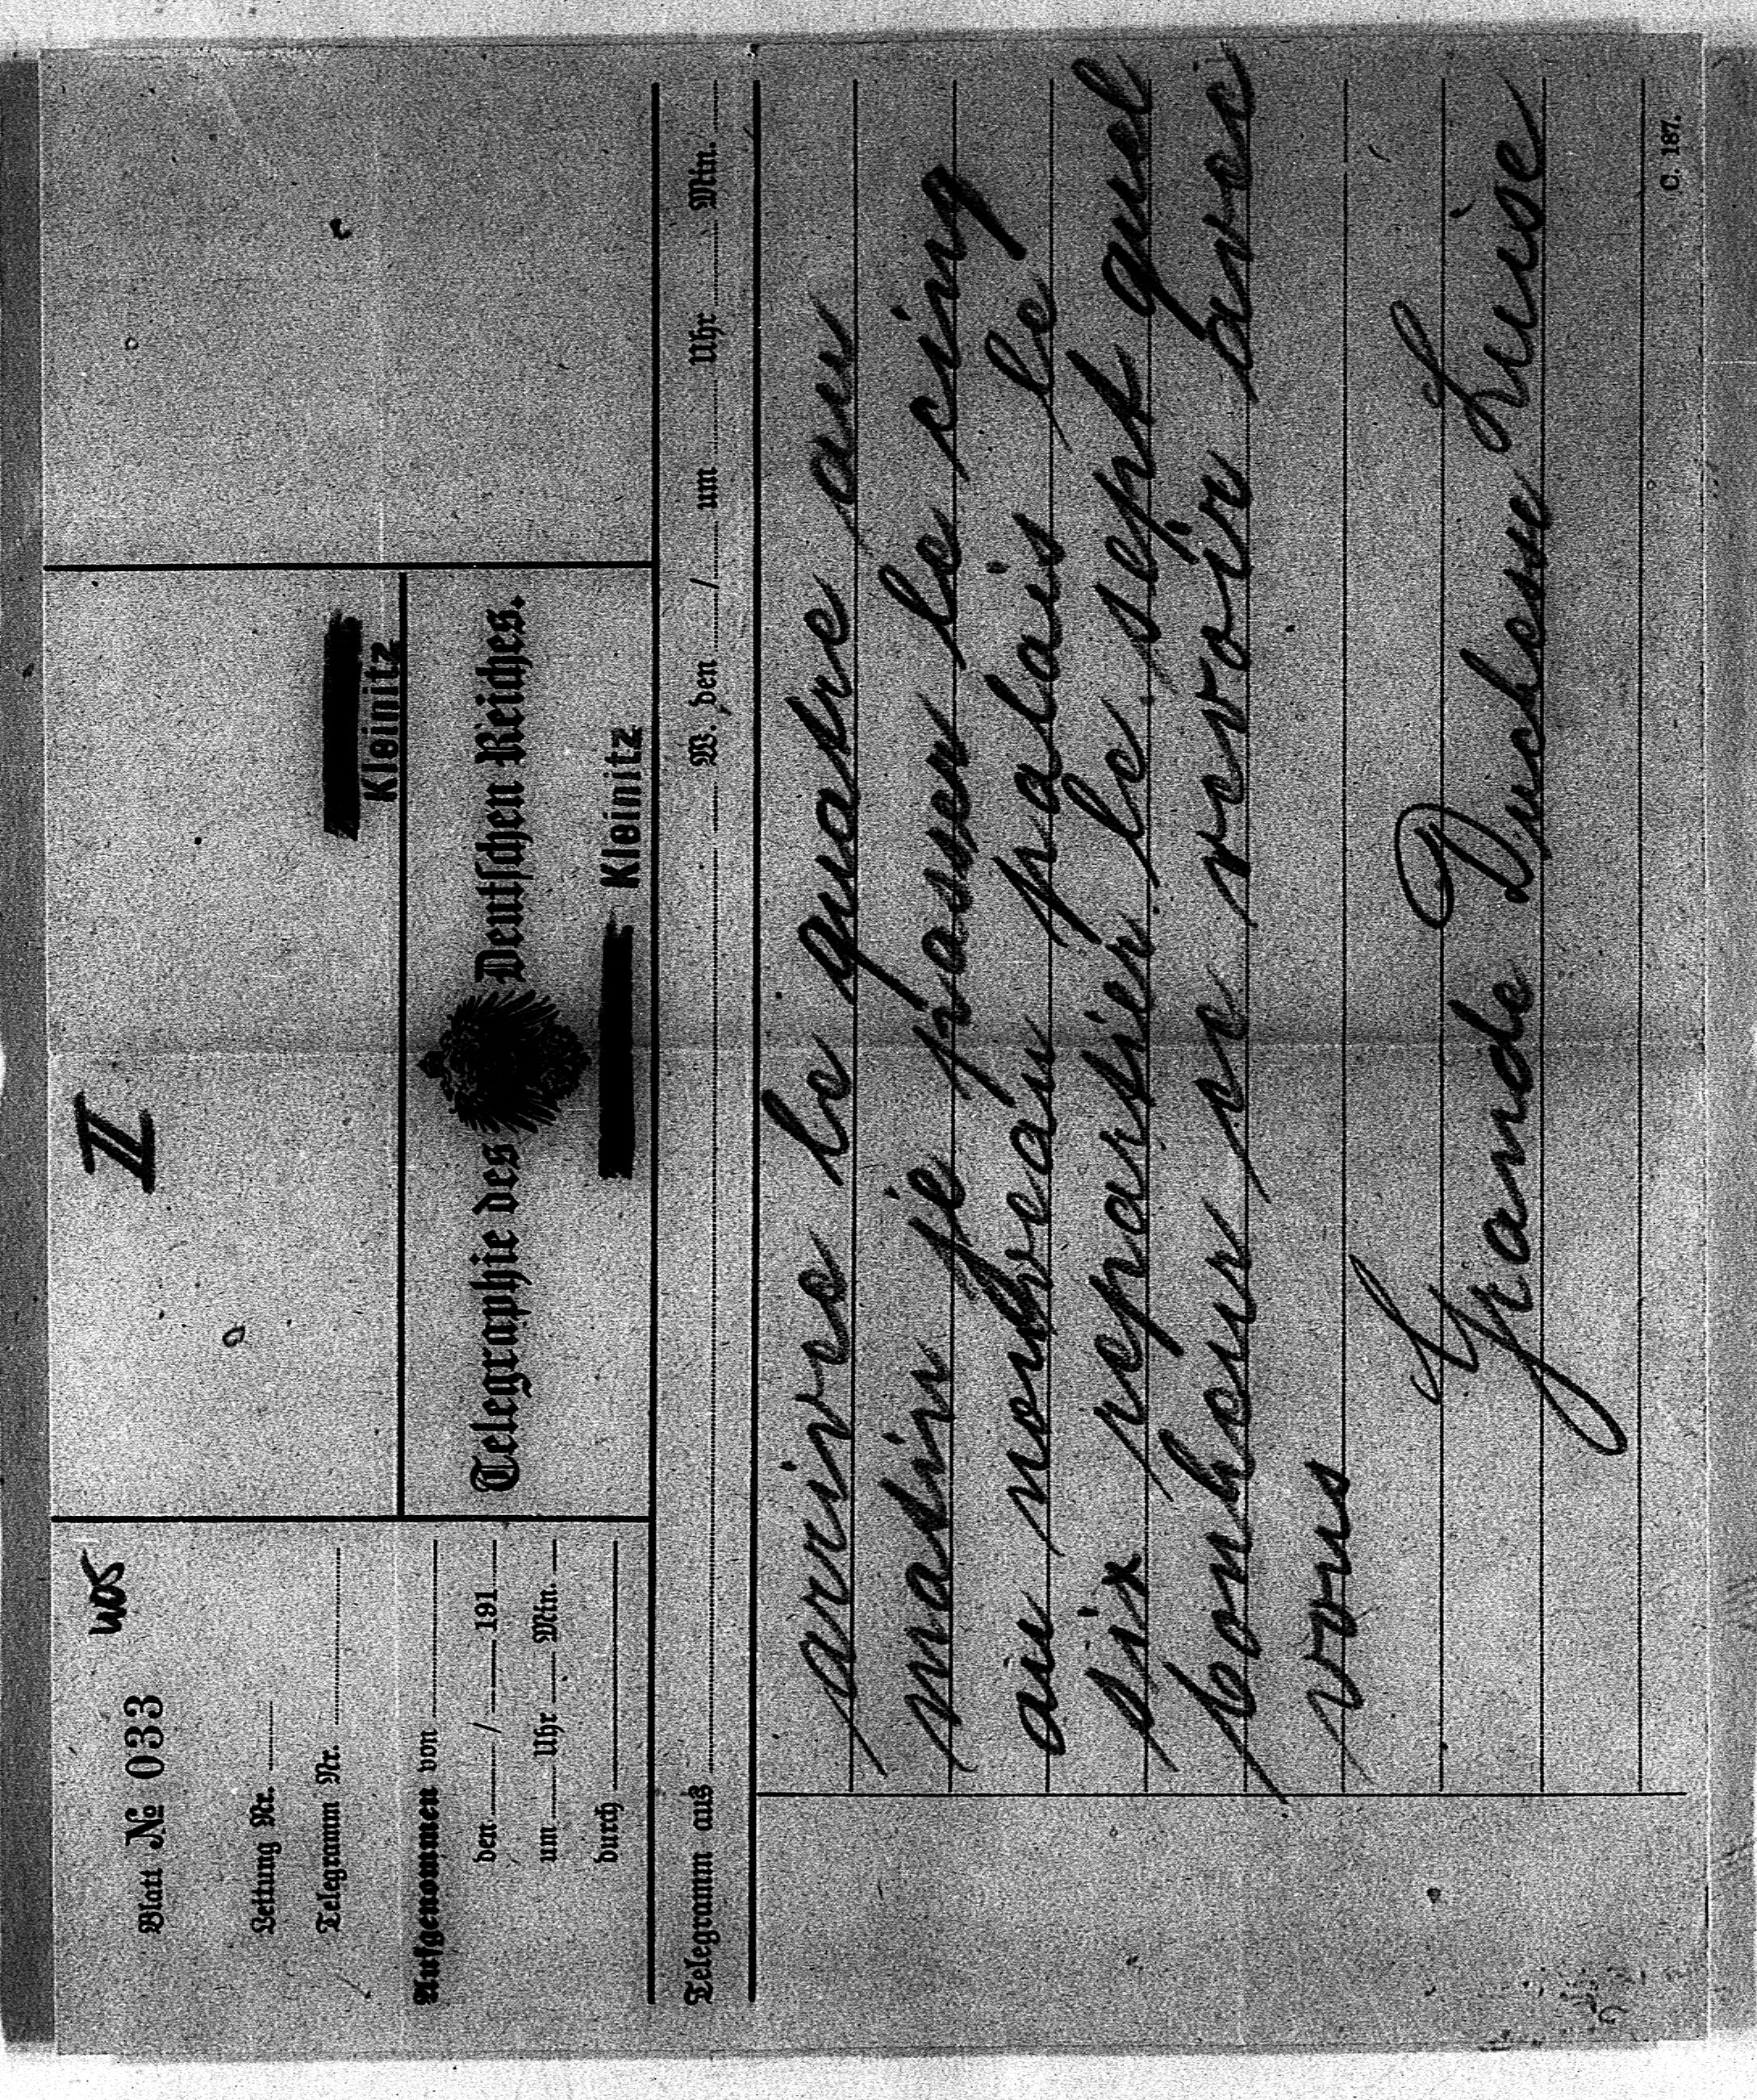 Blatt № 033 wos
Leitung Nr.
Telegramm Nr.
Aufgenommen von
den / 191
um Uhr Min.
durch
II
Kleinitz
Telegraphie des Deutschen Reiches.
Kleinitz
Telegramm aus W. den / um Uhr Min.
arrive le quatre au
matin je passer le cinq
au nouveau palais le
six repartier le sept quel
bonheur se revoir avec
vous
Grande Duchesse Luise
C. 187.